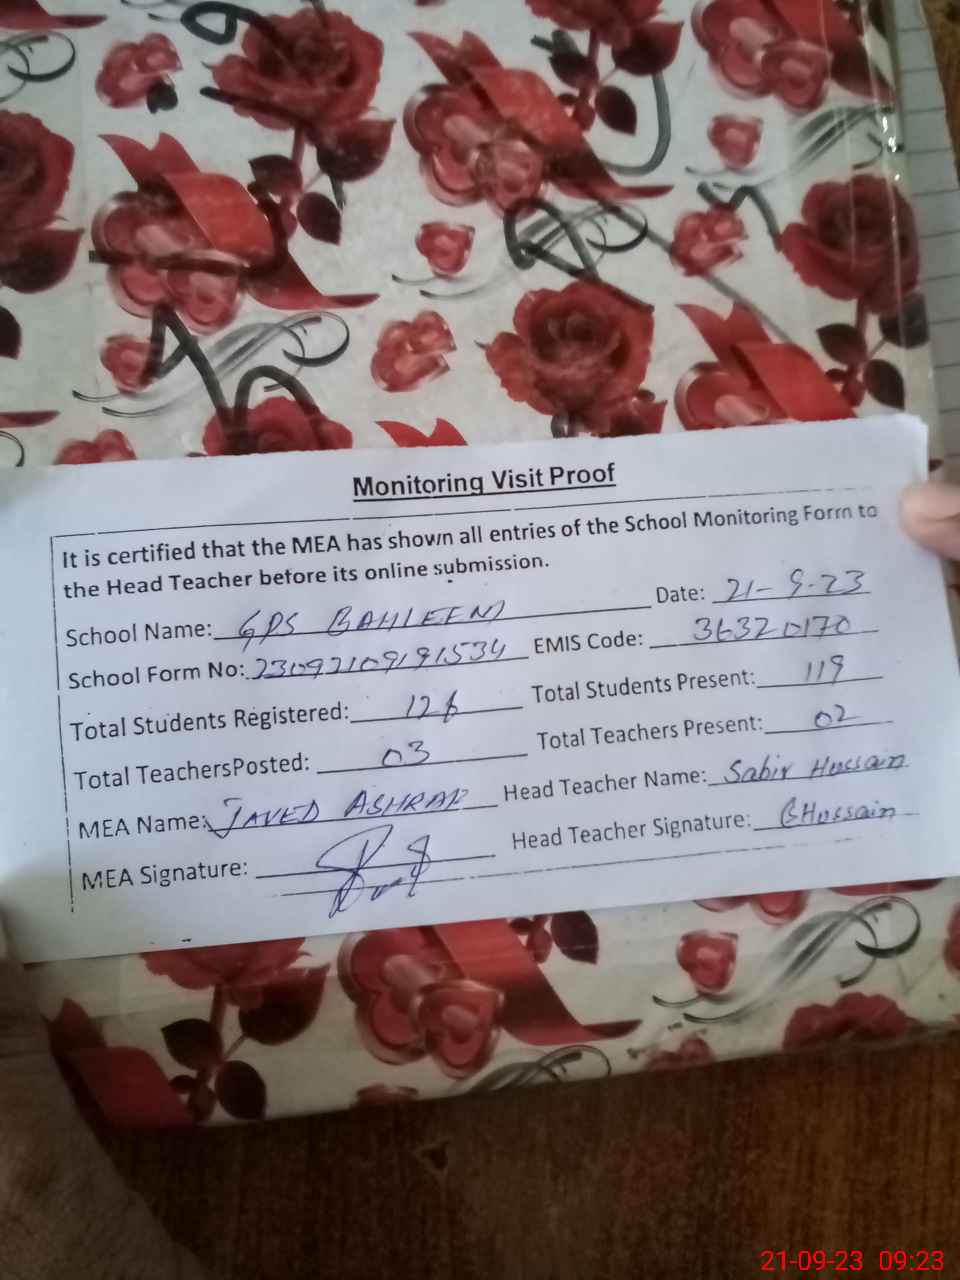 Monitoring Visit Proof
It is certified that the MEA has shown all entries of the School Monitoring Form to
the Head Teacher before its online submission.
School Name: GPS BAHLEEM Date: 21-9-23
School Form No: 23092109191534 EMIS Code: 36320170
Total Students Registered: 126 Total Students Present: 119
Total TeachersPosted: 03 Total Teachers Present: 02
MEA Name: JAVED ASHRAF Head Teacher Name: Sabir Hussain
MEA Signature: Head Teacher Signature: SHussain
21-09-23 09:23